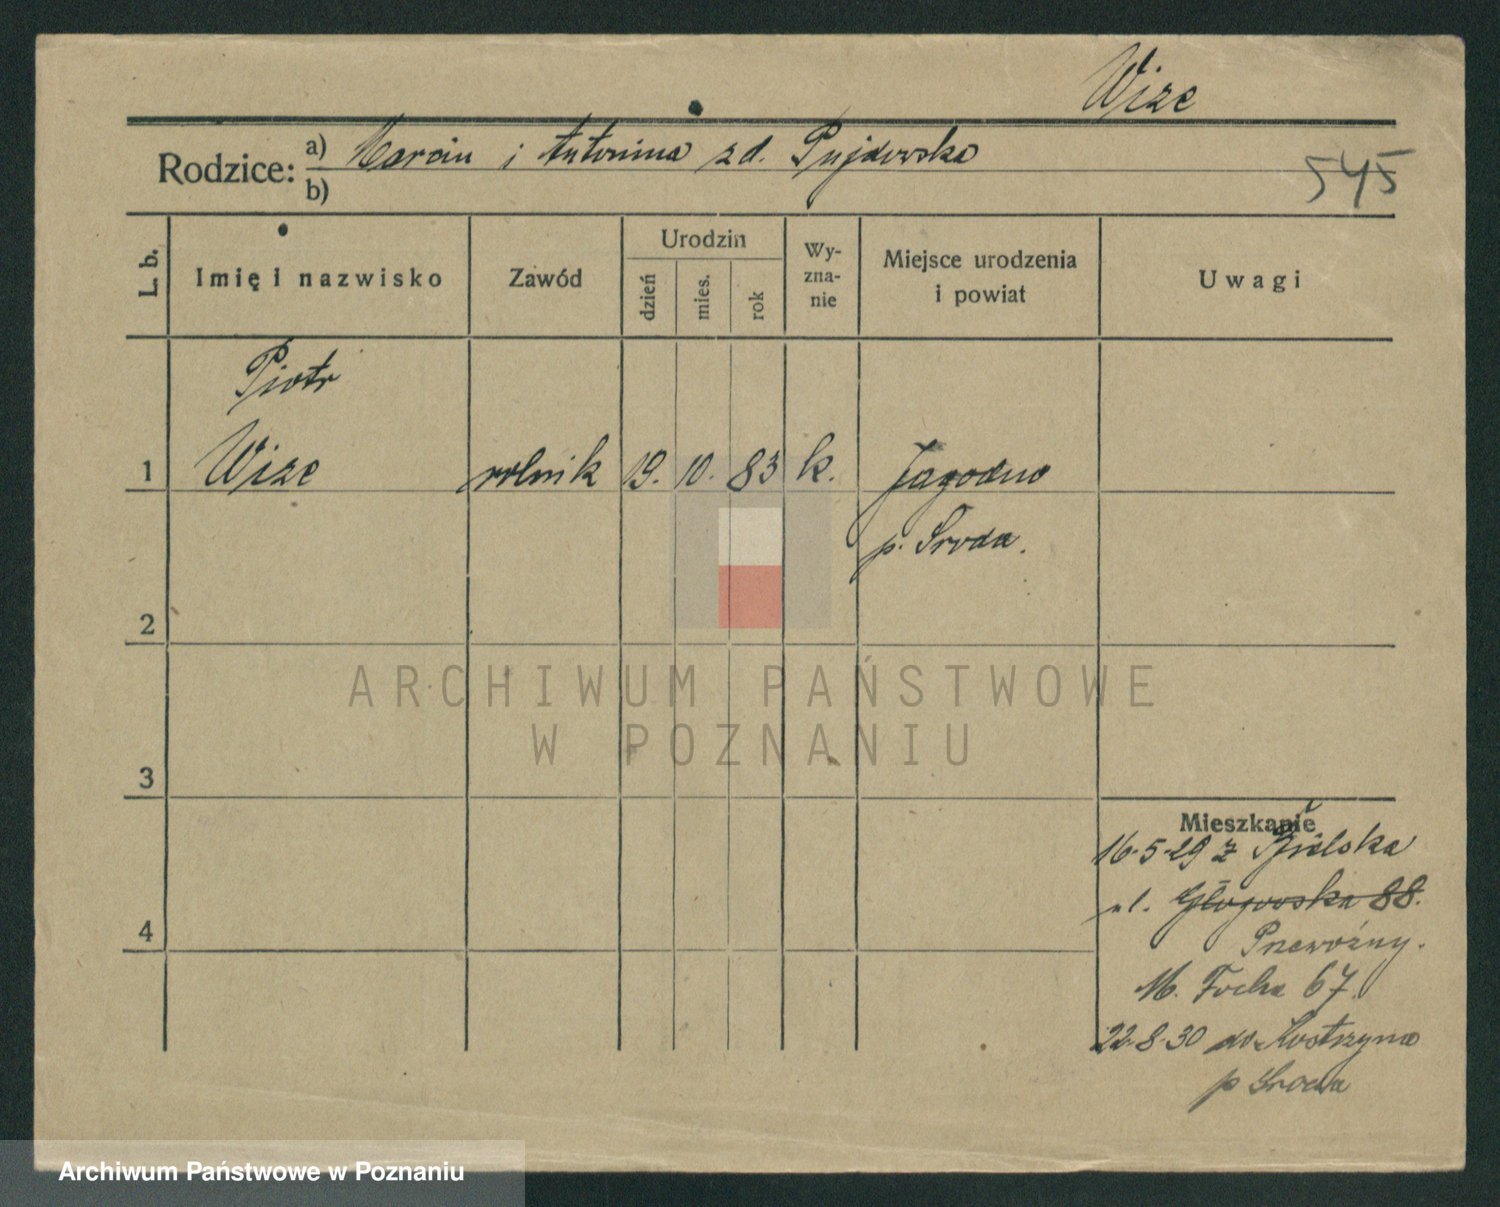 Wize
Rodzice: a) Marcin i Antonina z d. Pujdowska
b)
545
L. b.
Imię i nazwisko
Zawód
Urodzin
dzień
mies.
rok
Wy-
zna-
nie
Miejsce urodzenia
i powiat
Uwagi
Piotr
1 Wize rolnik 19. 10. 83 k. Jagodno
p. Sroda.
2
3
4
Mieszkanie
16-5-29 z Bielska
ul. Głogowska 88.
M. Focha 67.
22-8-30 do Kostrzyna
p Sroda
ARCHIWUM PAŃSTWOWE
W POZNANIU
Archiwum Państwowe w Poznaniu